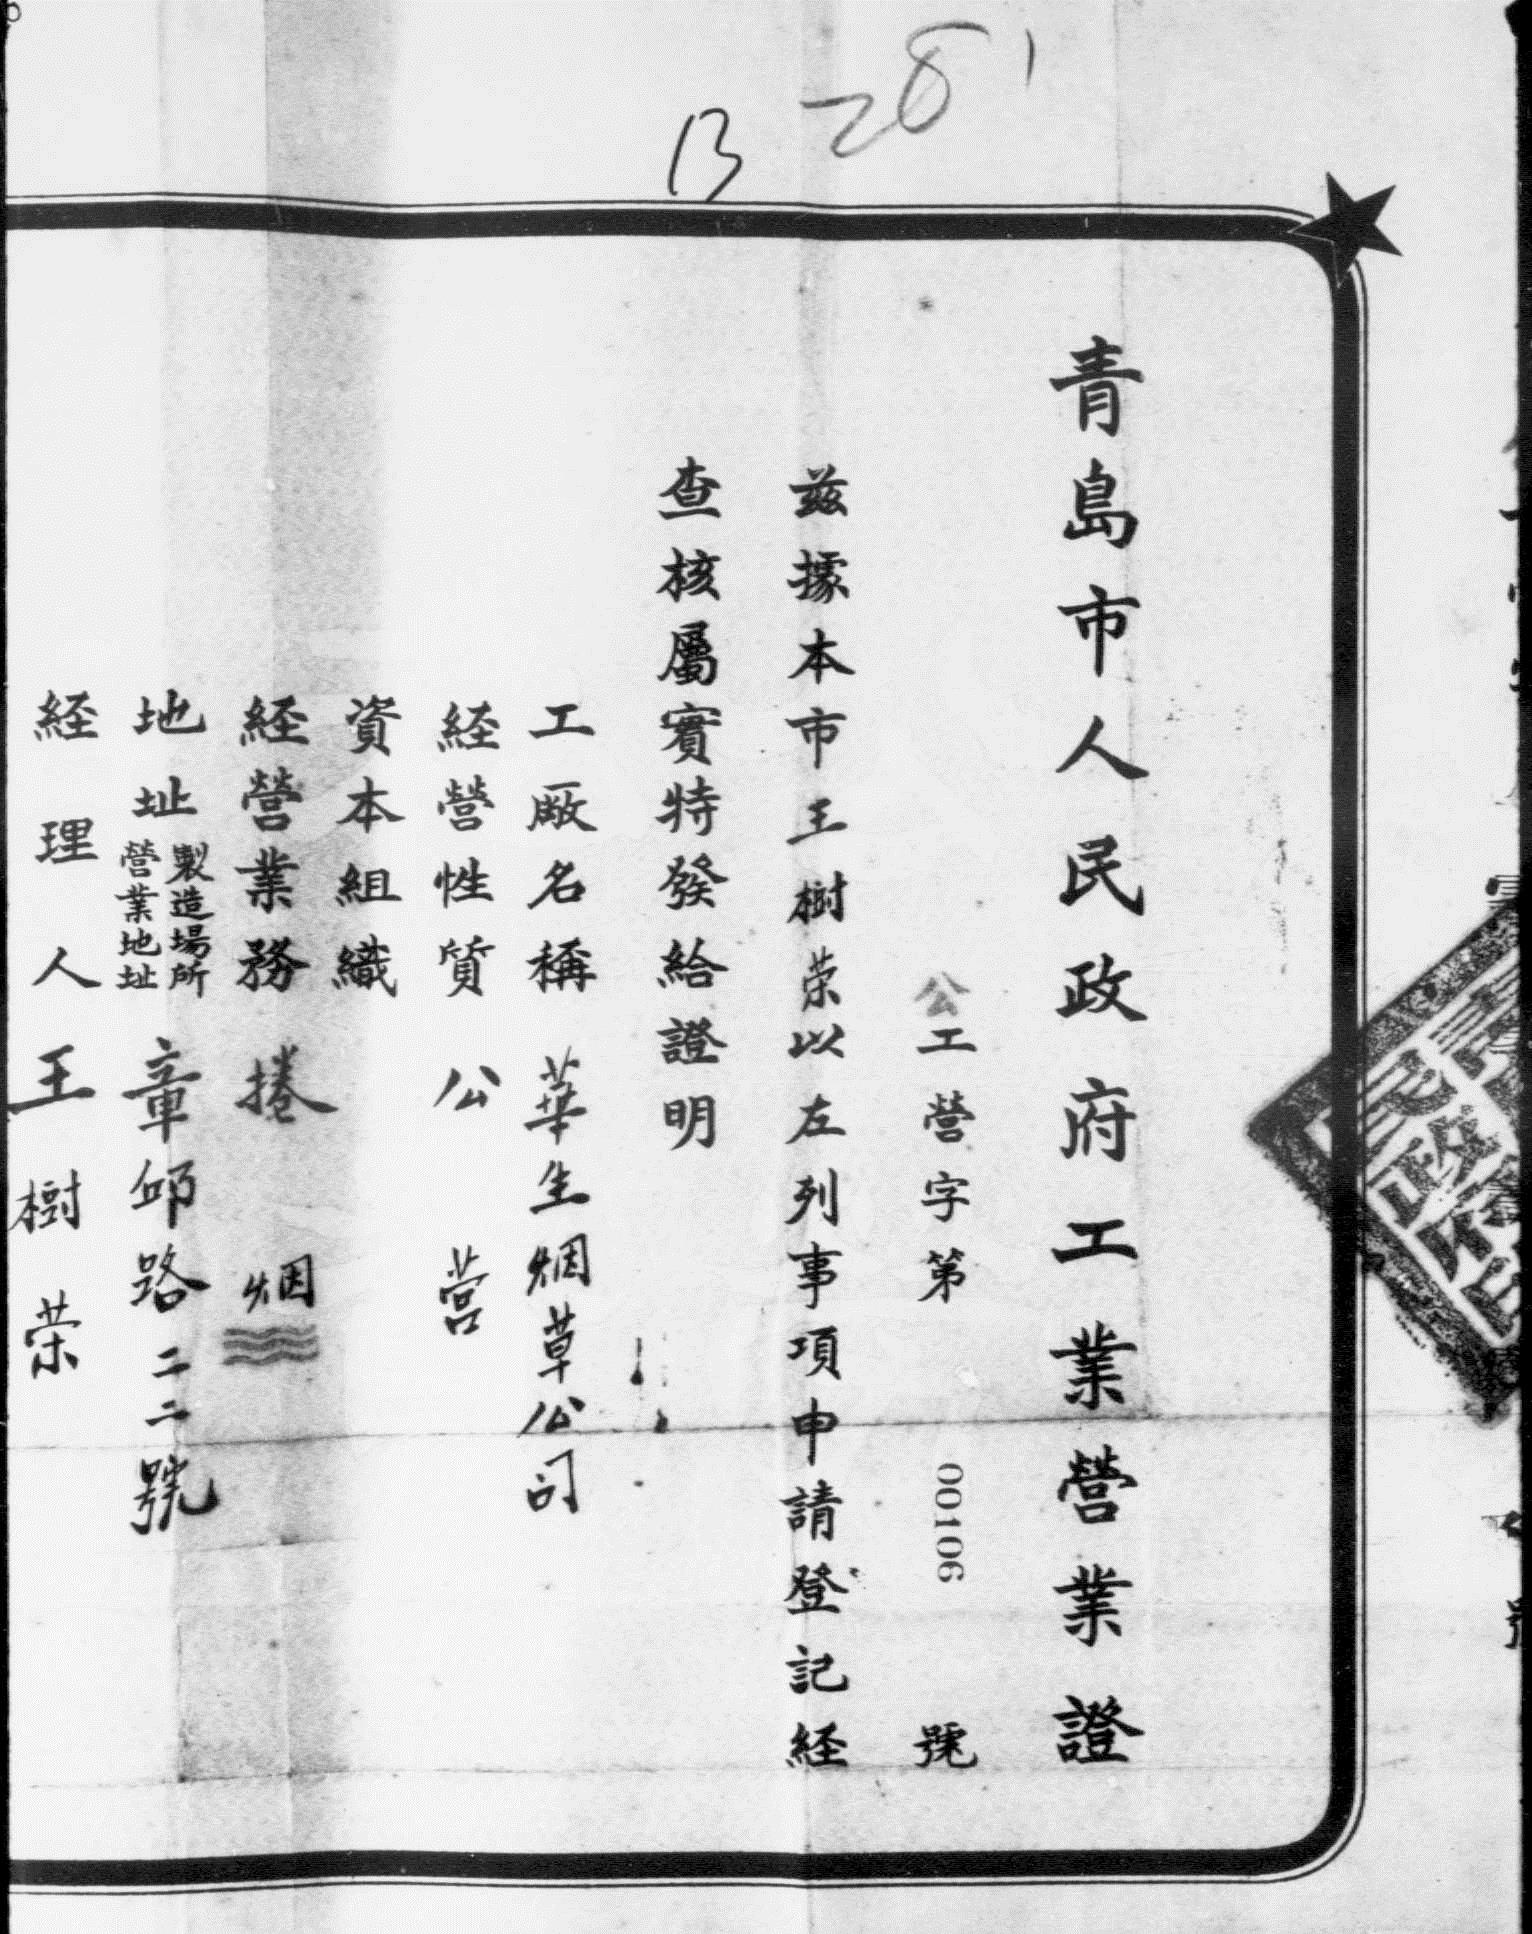 281
13
青島市人民政府工業營業證
公工營字第 00106 號
兹據本市王樹荣以左列事項申請登記経
查核屬實特發給證明
工廠名稱 華生烟草公司
経營性質 公营
資本組織
経營業務 捲烟
地址 製造場所 營業地址 章邱路二二號
経理人 王樹荣